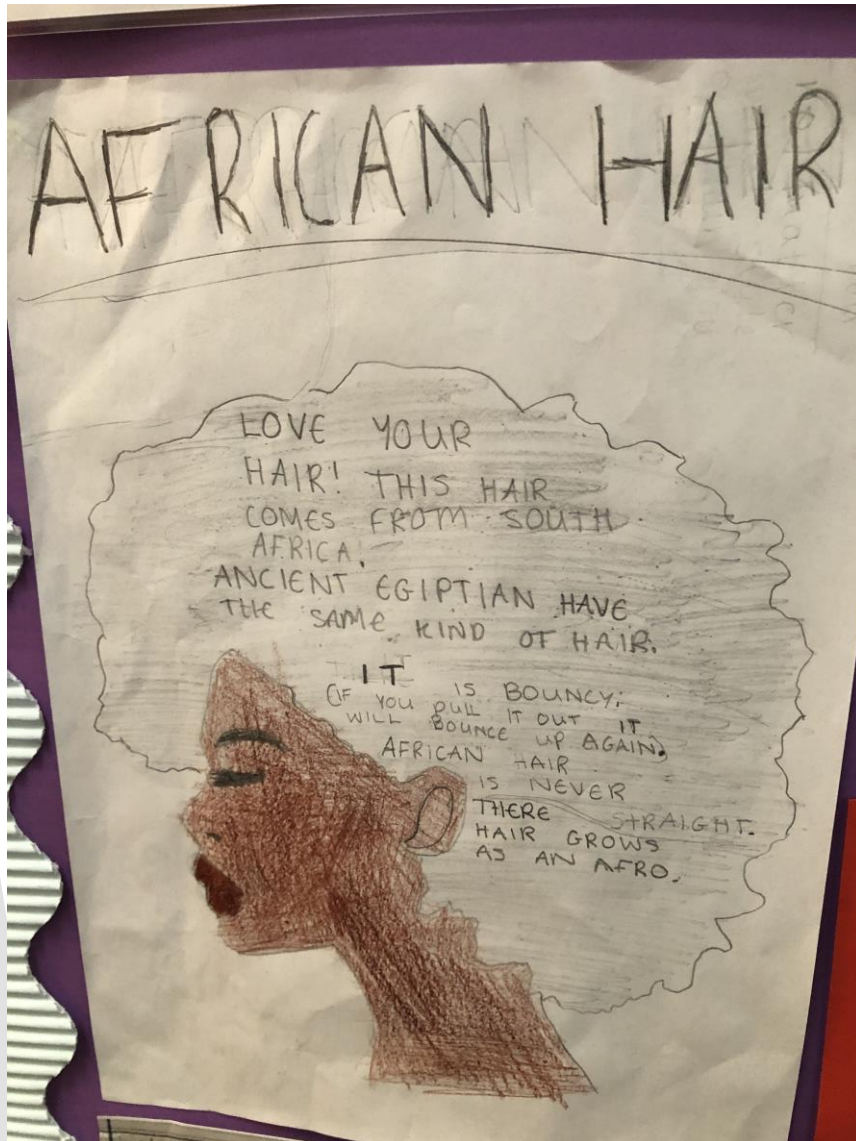 AFRICAN HAIR
LOVE YOUR
HAIR! THIS HAIR
COMES FROM SOUTH
AFRICA!
ANCIENT EGIPTIAN HAVE
THE SAME KIND OF HAIR.
IT IS BOUNCY;
(IF YOU PULL IT OUT IT
WILL BOUNCE UP AGAIN)
AFRICAN HAIR
IS NEVER
STRAIGHT.
THERE
HAIR GROWS
AS AN AFRO.